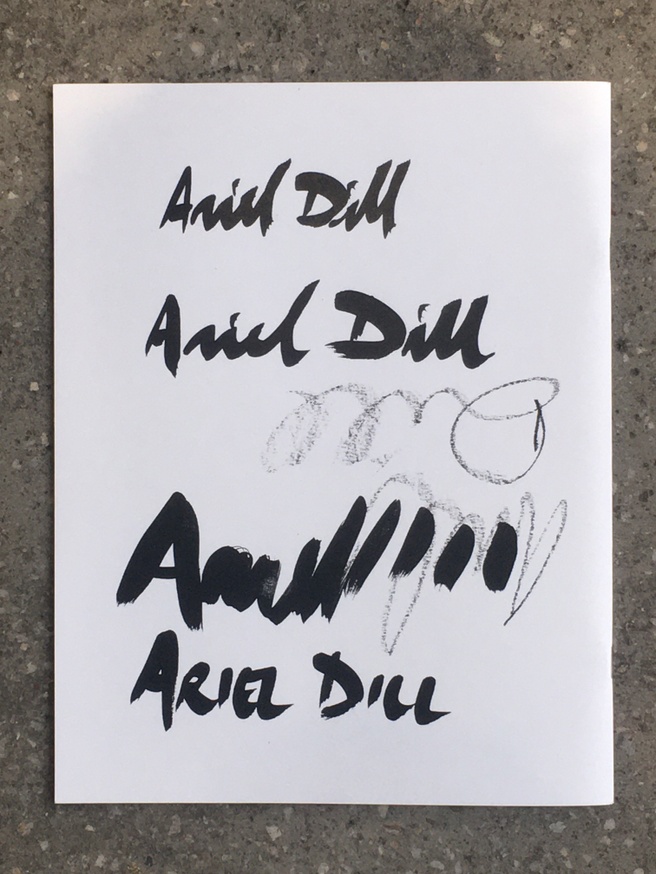 Ariel Dill
Ariel Dill
ARIEL DILL